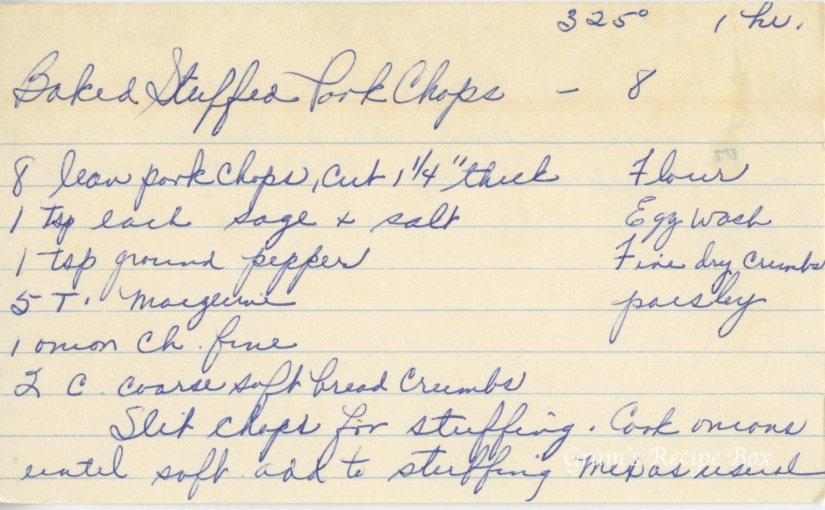 325° 1 hr.
Baked Stuffed Pork Chops - 8
8 lean pork chops, cut 1 1/4" thick Flour
1 tsp each sage + salt Egg wash
1 tsp ground pepper Fine dry crumbs
5 T. Margerine parsley
1 onion ch. fine
2 C. coarse soft bread crumbs
Slit chops for stuffing. Cook onions
until soft add to stuffing Mix as usual
Gram's Recipe Box